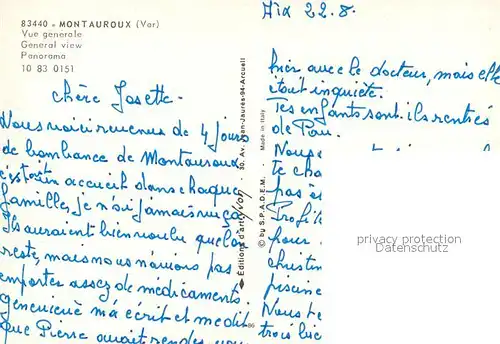 83440 - MONTAUROUX (Var)
Vue generale
General view
Panorama
10 83 0151
chère Josette -
Nous voici revenus de 4 jours
de l'ambiance de Montauroux
accueil dans chaque
famille, je n'ai jamais vu ça
Ils auraient bien voulu que l'on
reste, mais nous n'avions pas
emporter assez de médicaments.
Geneviève m'a écrit et me dit
que Pierre avait rendez vous
Editions d'art yvon - 30, Av. Jean-Jaurès-94-Arcueil
© by S.P.A.D.E.M. - Made in Italy
Aix 22.8.
hier avec le docteur, mais elle
était inquiète.
Tes enfants sont-ils rentrés
de Pau.
Nous
te cha
pas
Profite
pour
christin
piscine
Nous te
trois
privacy protection
Datenschutz